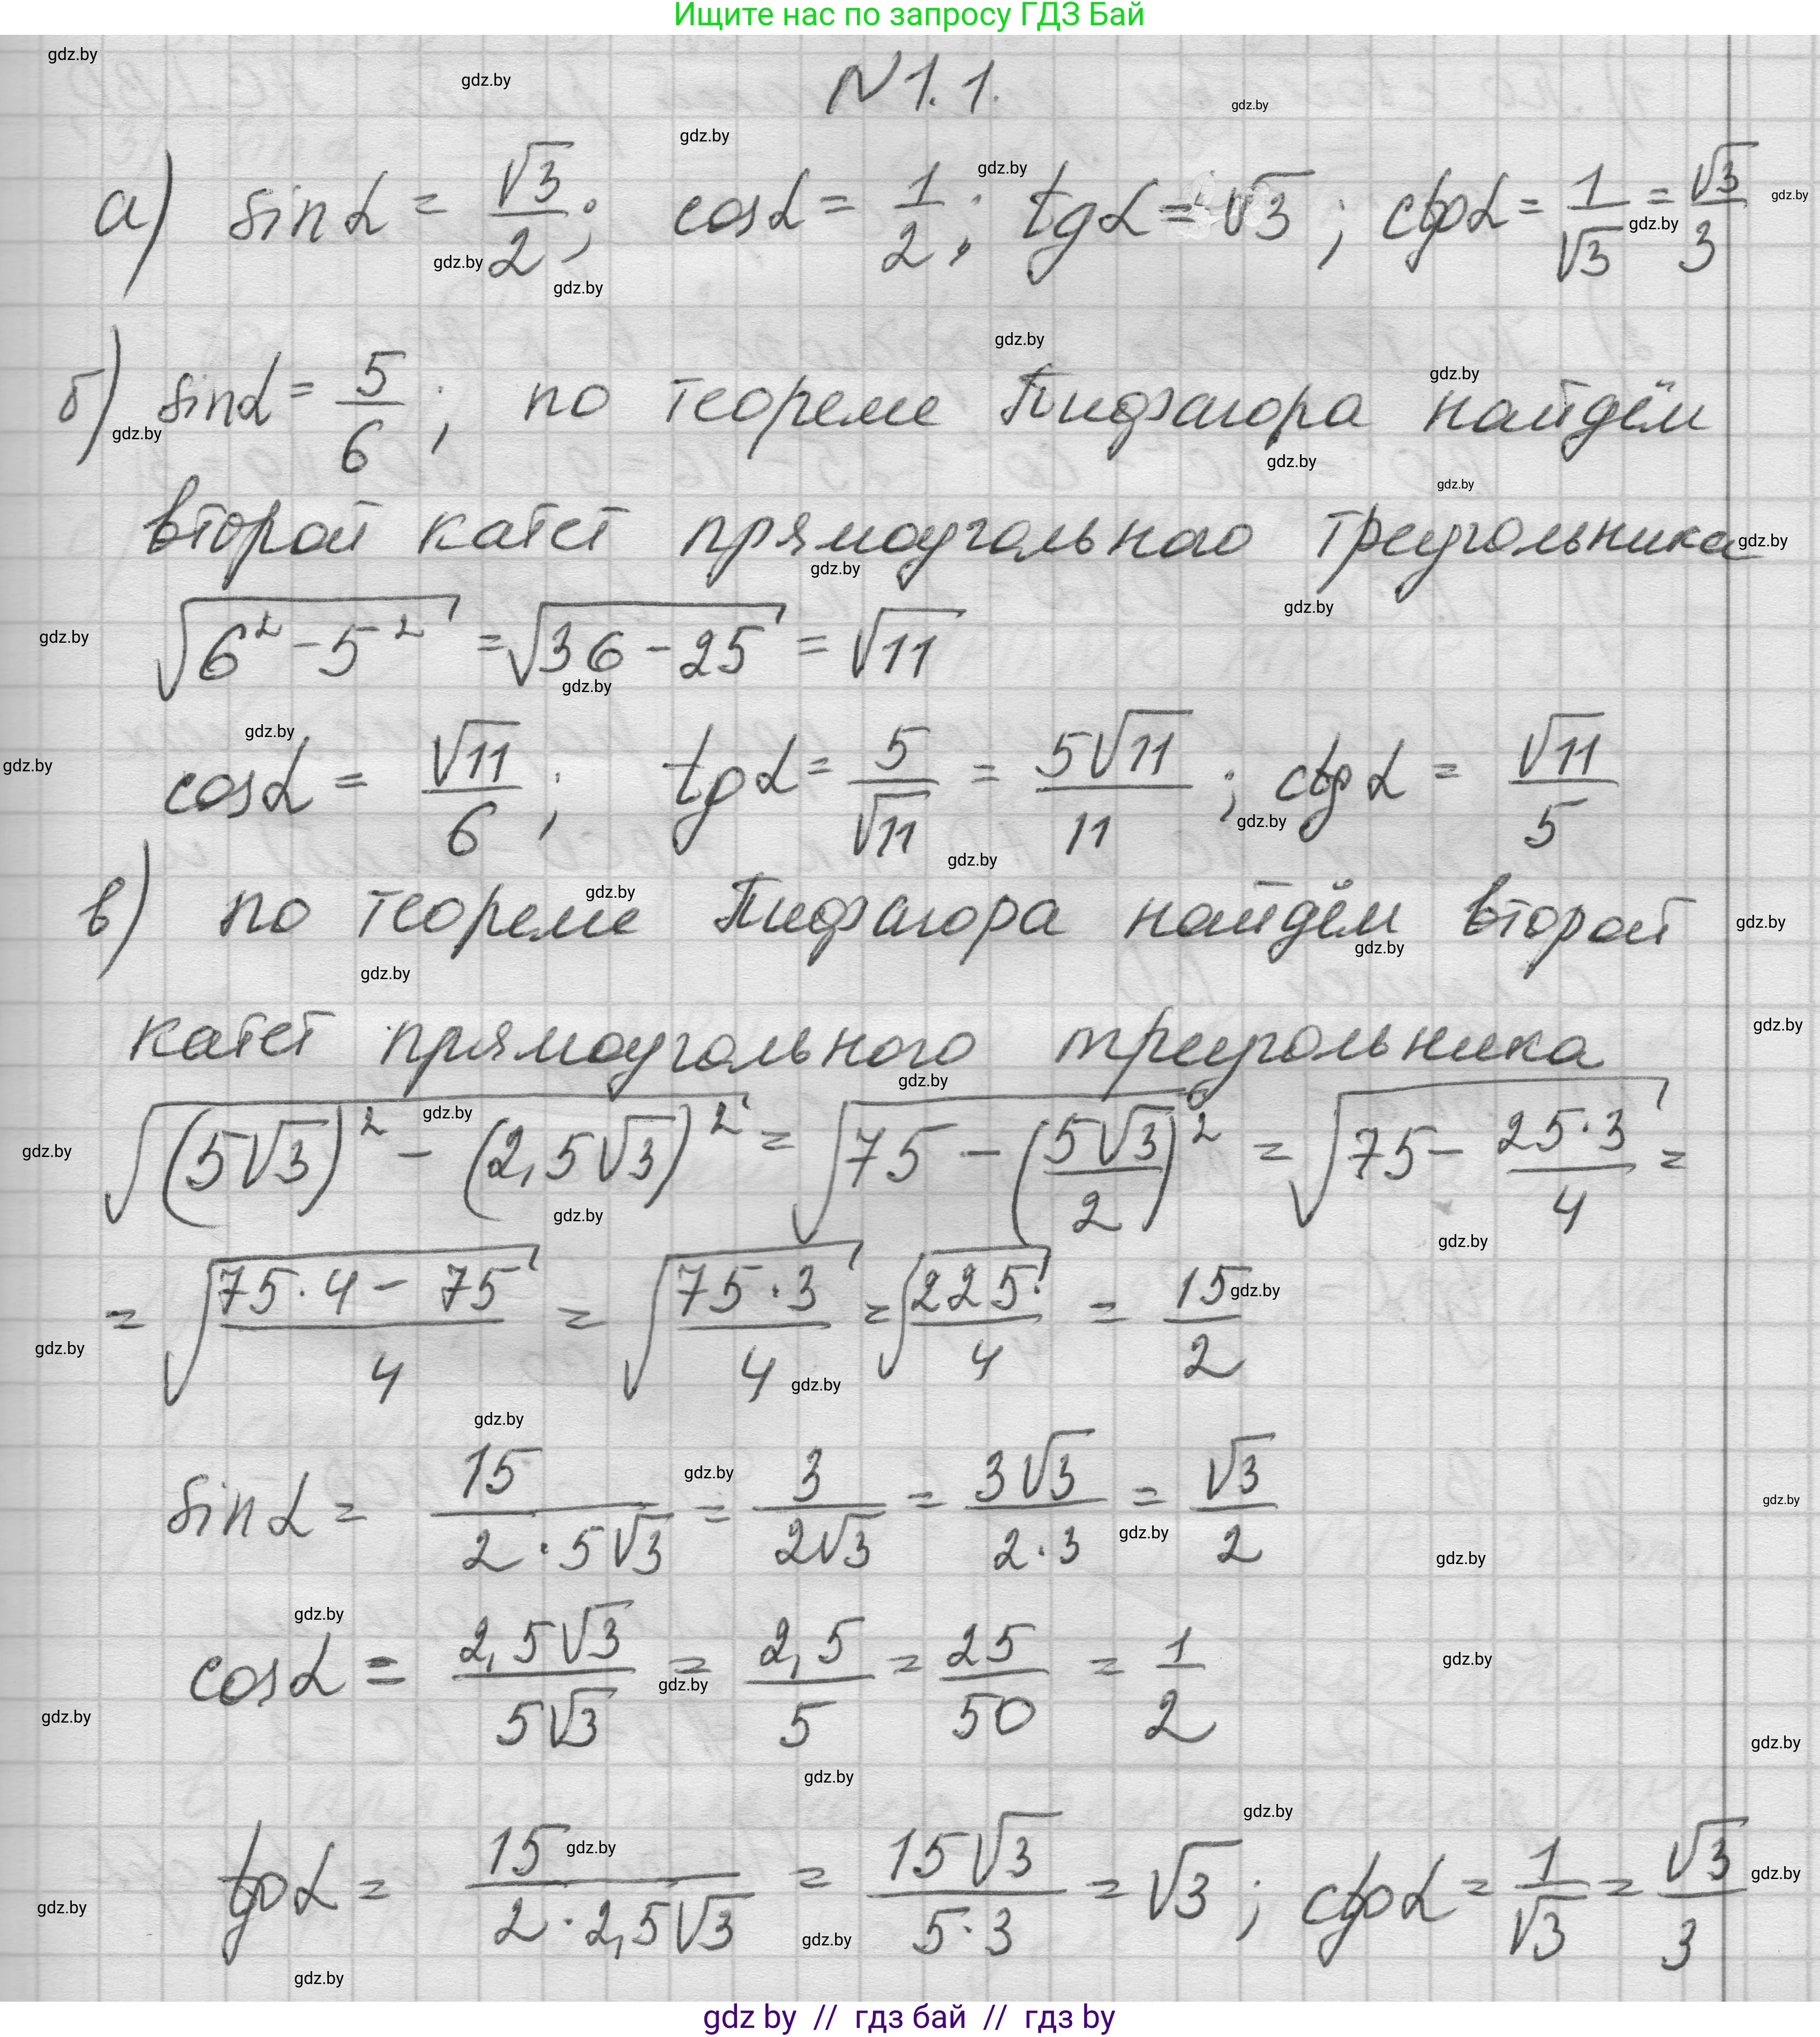 Ищите нас по запросу ГДЗ Бай
N 1. 1.
а) sin α = √3/2; cos α = 1/2; tg α = √3; ctg α = 1/√3 = √3/3
б) sin α = 5/6; по теореме Пифагора найдём
второй катет прямоугольного треугольника
√(6² - 5²) = √(36 - 25) = √11
cos α = √11/6; tg α = 5/√11 = 5√11/11; ctg α = √11/5
в) по теореме Пифагора найдём второй
катет прямоугольного треугольника
√((5√3)² - (2,5√3)²) = √(75 - (5√3/2)²) = √(75 - 25·3/4) =
= √((75·4 - 75)/4) = √(75·3/4) = √(225/4) = 15/2
sin α = 15/(2·5√3) = 3/(2√3) = 3√3/(2·3) = √3/2
cos α = 2,5√3/(5√3) = 2,5/5 = 25/50 = 1/2
tg α = 15/(2·2,5√3) = 15√3/(5·3) = √3; ctg α = 1/√3 = √3/3
gdz by // гдз бай // гдз by